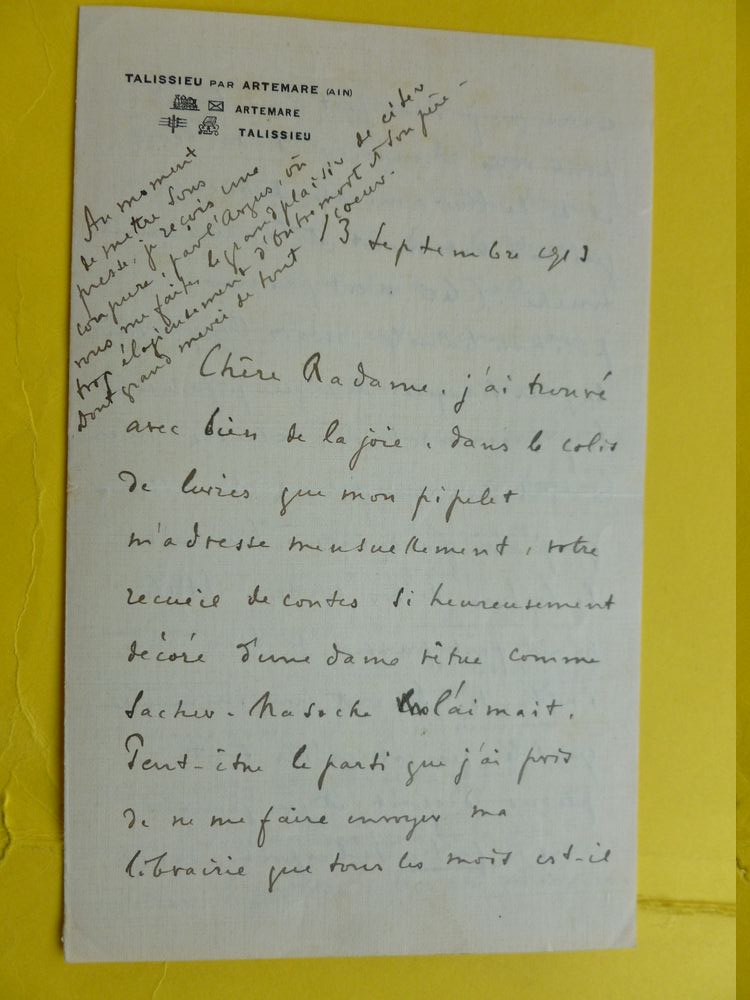 TALISSIEU PAR ARTEMARE (AIN)
ARTEMARE
TALISSIEU
Au moment
de mettre sous
presse, je reçois une
coupure, par l'Argus, où
vous me faites le grand plaisir de citer
trop élogieusement d'Outremort et son père –
Dont grand merci de tout coeur.
13 Septembre 1913
Chère Madame, j'ai trouvé
avec bien de la joie, dans le colis
de livres que mon pipelet
m'adresse mensuellement, votre
recueil de contes si heureusement
décoré d'une dame vêtue comme
Sacher-Masoch l'aimait.
Peut-être le parti que j'ai pris
de ne me faire envoyer ma
librairie que tous les mois est-il